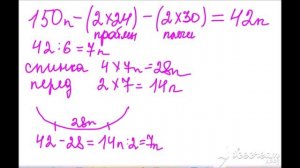 150п-(2х24)-(2х30)=42п
проймы плечи
42:6=7п
спинка 4х7п=28п
перед 2х7=14п
28п
42-28=14п:2=7п